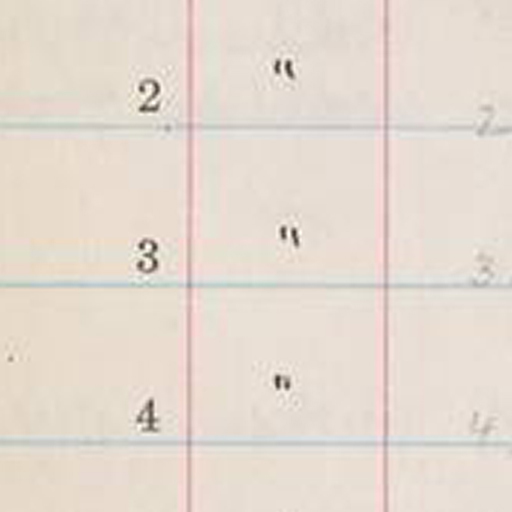 2 " 2
3 " 3
4 " 4